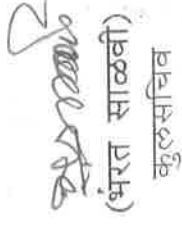 (भरत साळवी)
कुलसचिव